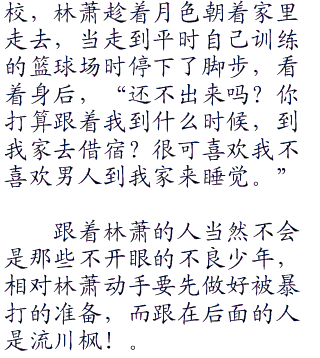 校，林萧趁着月色朝着家里
走去，当走到平时自己训练
的篮球场时停下了脚步，看
着身后，“还不出来吗？你
打算跟着我到什么时候，到
我家去借宿？很可喜欢我不
喜欢男人到我家来睡觉。”
跟着林萧的人当然不会
是那些不开眼的不良少年，
相对林萧动手要先做好被暴
打的准备，而跟在后面的人
是流川枫！。